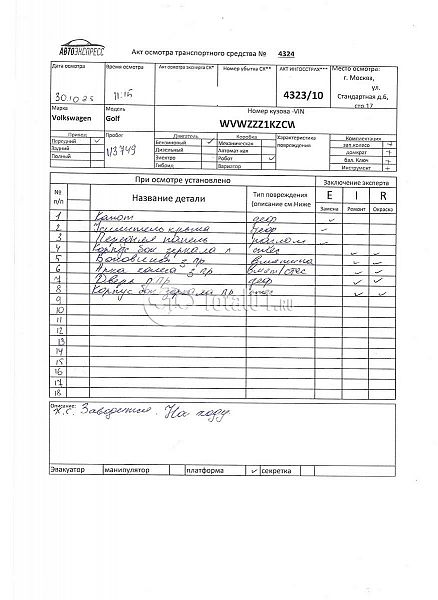 АВТОЭКСПРЕСС
Акт осмотра транспортного средства № 4324
Дата осмотра Время осмотра Акт осмотра эксперта СК* Номер убытка СК** АКТ ИНГОССТРАХ*** Место осмотра:
г. Москва,
ул.
Стандартная д.6,
стр.17
11:15 4323/10
Марка Модель Номер кузова -VIN
Volkswagen Golf WVWZZZ1KZCW
Привод Пробег Двигатель Коробка Характеристика повреждения Комплектация
Передний ✓ Бензиновый ✓ Механическая зап.колесо +
Задний Дизельный Автомат кая домкрат +
Полный Электро Робот ✓ бал. Ключ +
Гибрид Вариатор Инструмент +
При осмотре установлено Заключение эксперта
№ п/п Название детали Тип повреждения (описание см Ниже E I R
Замена Ремонт Окраска
1 Капот деф ✓
2 Усилитель крыла деф ✓
3 Передняя панель разлом ✓
4 Корпус бок зеркала л скес ✓ ✓
5 Боковина з пр вмятина ✓ ✓
6 Арка колеса з пр ✓ ✓
7 Дверь п пр деф ✓ ✓
8 Корпус бок зеркала пр скес ✓ ✓
9
10
11
12
13
14
15
16
17
18
Total01.RU
Описание:
х.с. Заводится. На ходу.
Эвакуатор манипулятор платформа ✓ секретка